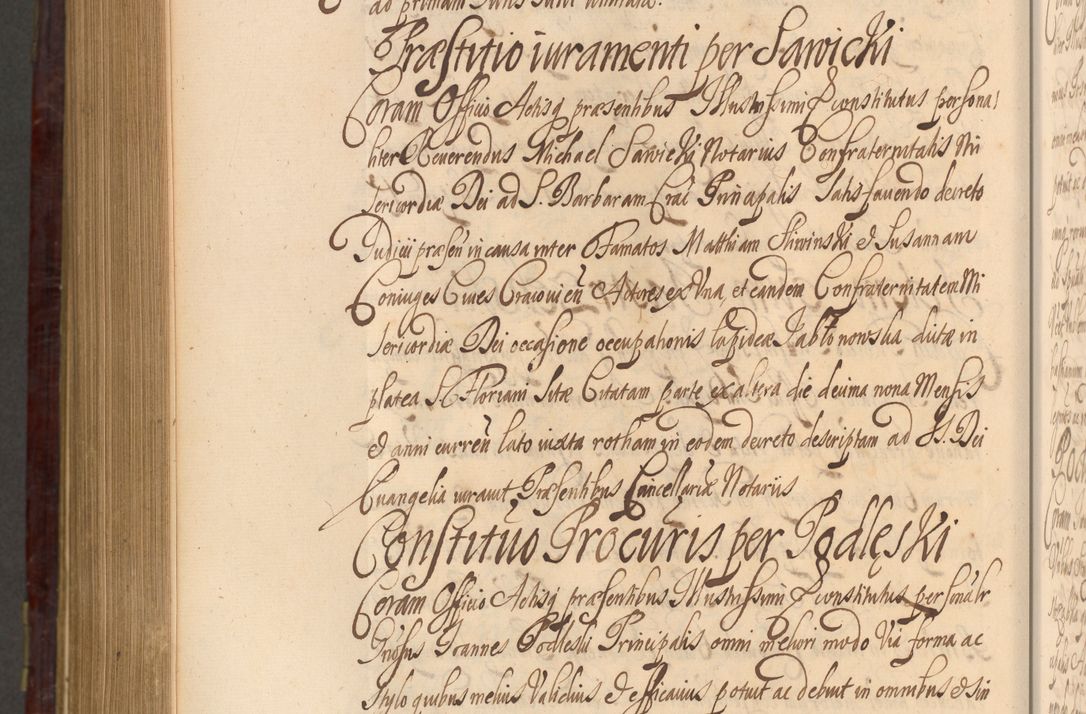 ad primam Juris
Præstitio iuramenti per Sawicki
Coram Officio Actisq præsentibus Illustrissimi constitutus persona
liter Reverendus Michael Sawicki Notarius Confraternitatis Mi
sericordiæ Dei ad S. Barbaram Crac Principalis Satisfaciendo decreto
Judicii præsen in causa inter Famatos Matthiam Sliwinski & Susannam
Coniuges Cives Cracovien Actores ex Una, et eandem Confraternitatem Mi
sericordiæ Dei occasione occupationis lapideæ Jabłonowska dictæ in
platea S. Floriani sitæ Citatam parte ex altera die decima nona Mensis
& anni curren lato iuxta rotham in eodem decreto descriptam ad SS. Dei
Evangelia iuravit Præsentibus Cancellariæ Notariis
Constitutio Procuris per Podlęski
Coram Officio Actisq præsentibus Illustrissimi constitutus personalr
Gnosus Joannes Podleski Principalis omni meliori modo Via forma ac
stylo quibus melius Validius & efficacius potuit ac debuit in omnibus & sin